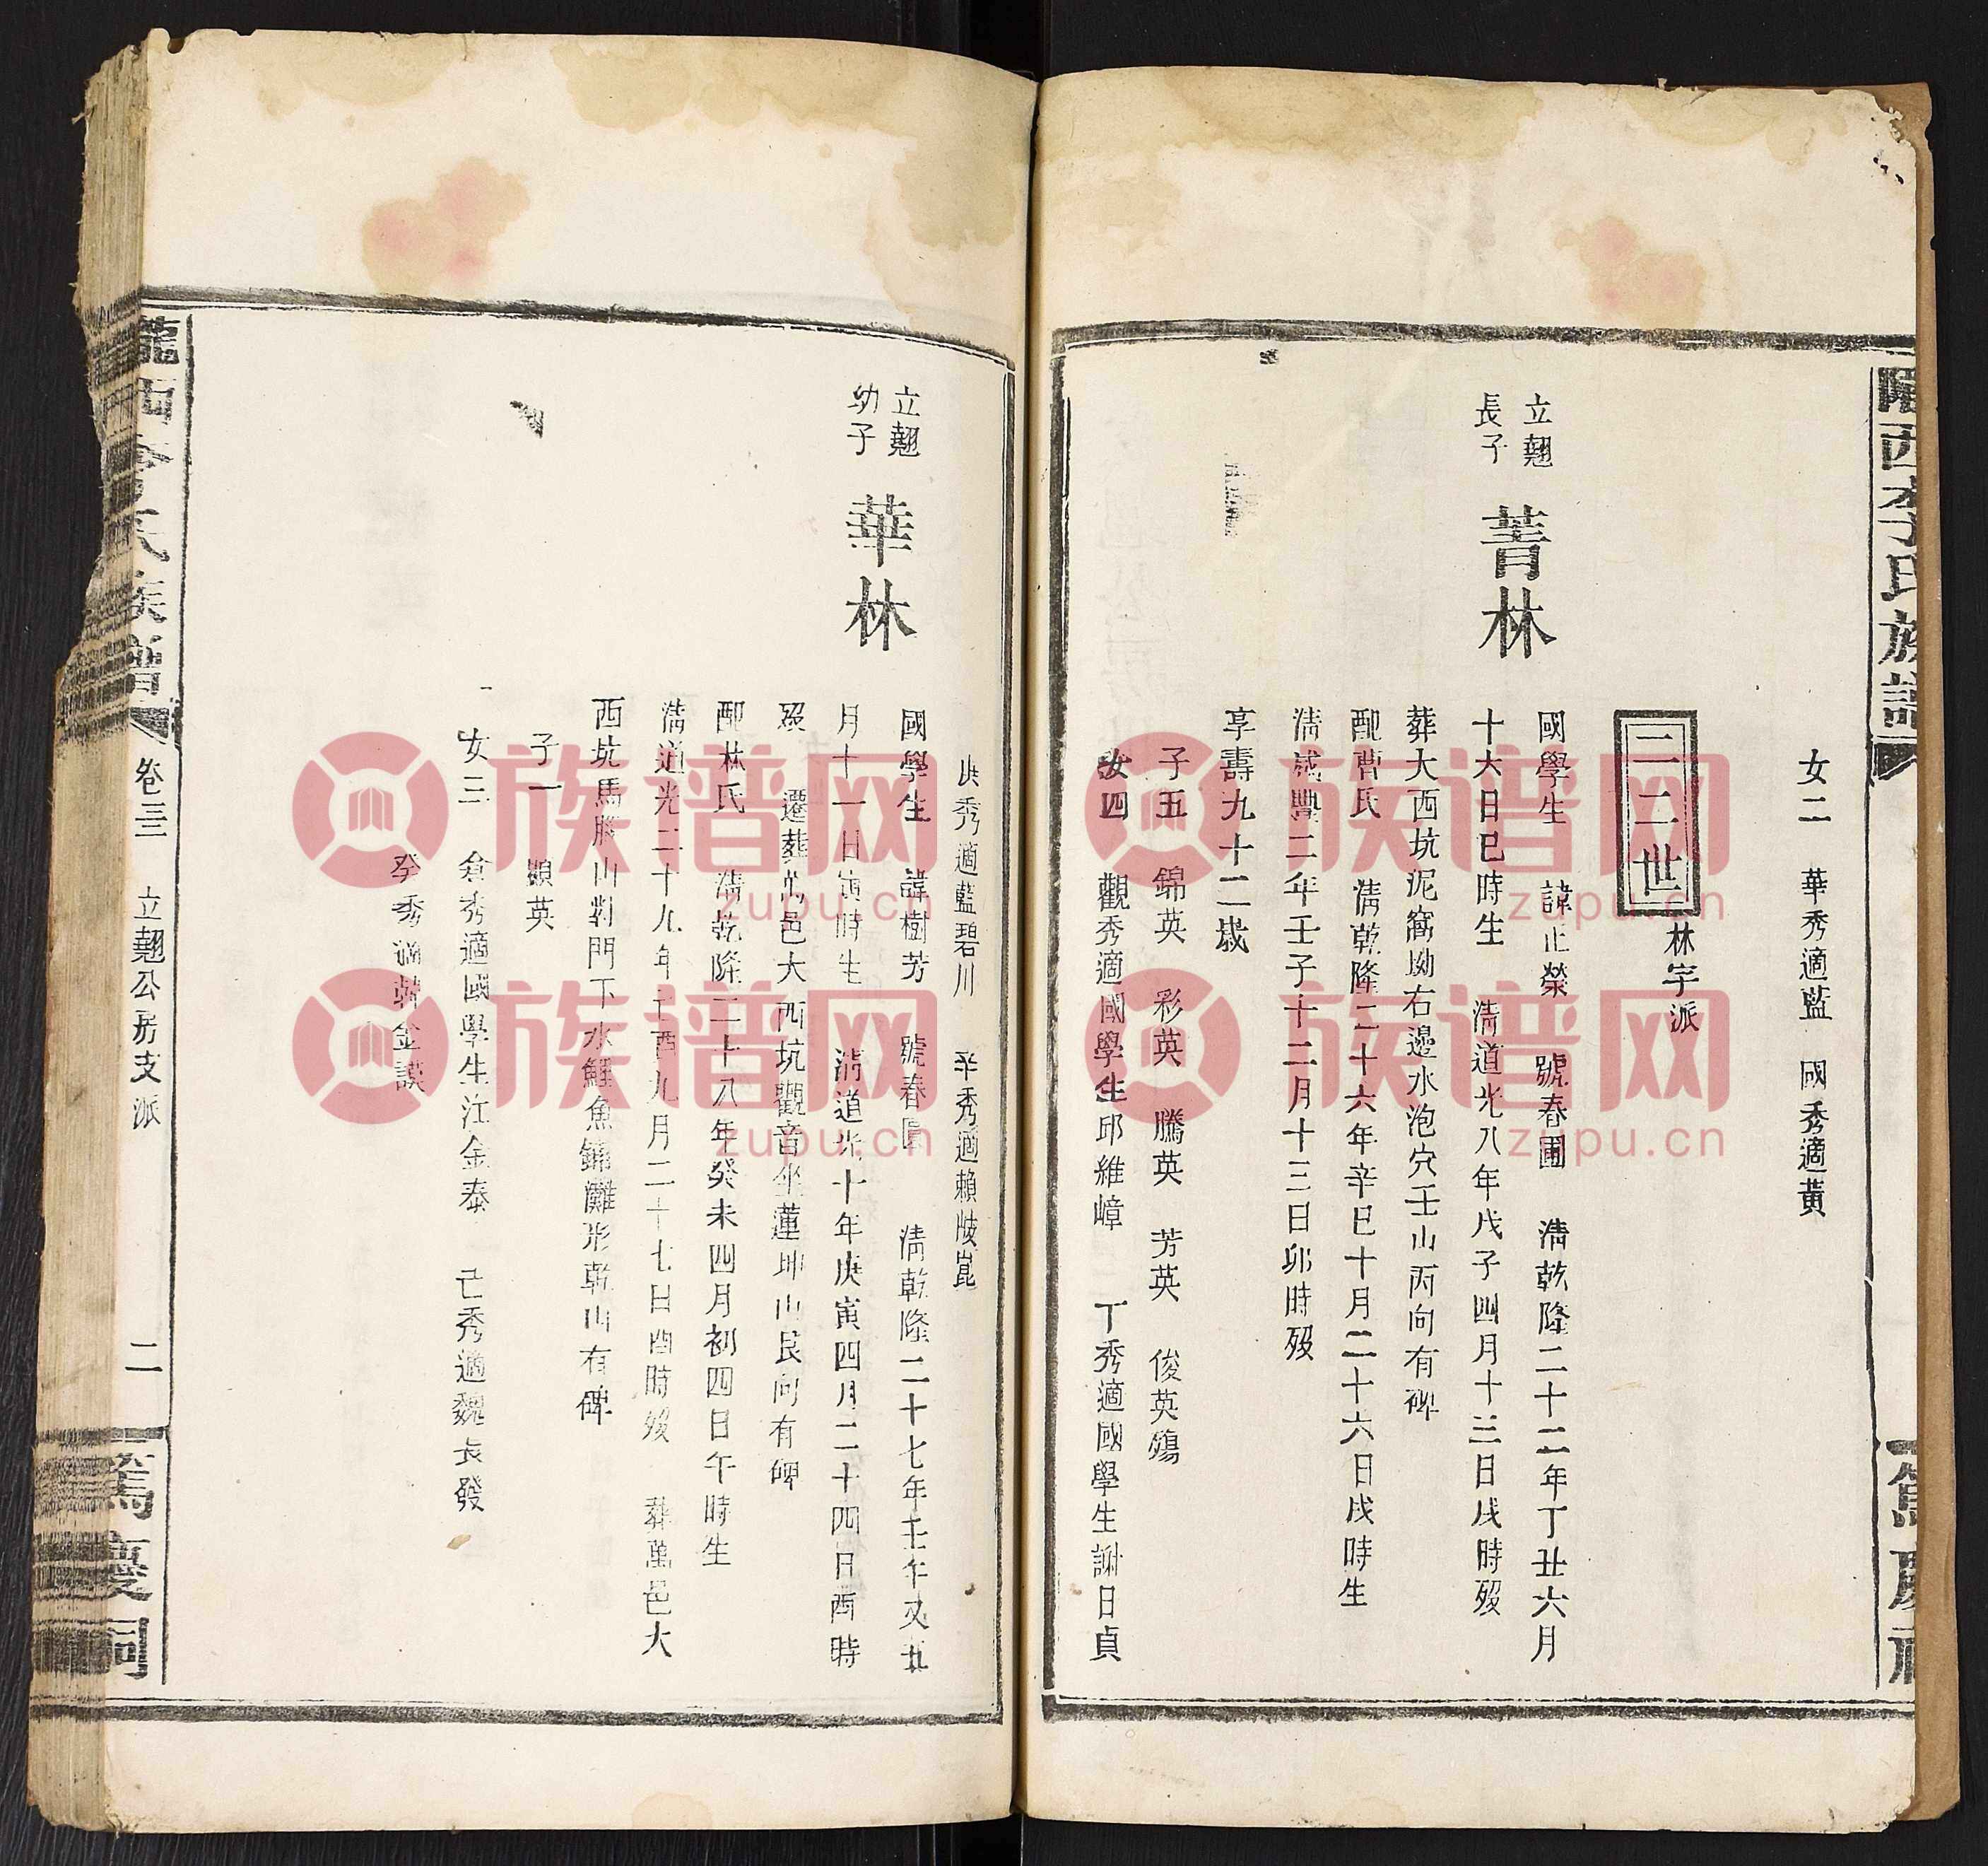 隴西李氏族譜
女二 華秀適藍 國秀適黃
二二世
林字派
立翹
長子
菁林
國學生 諱正榮 號春圃 清乾隆二十二年丁丑六月
十六日巳時生 清道光八年戊子四月十三日戌時歿
葬大西坑泥窩坳右邊水泡穴壬山丙向有碑
配曹氏 清乾隆二十六年辛巳十月二十六日戌時生
清咸豐二年壬子十二月十三日卯時歿
享壽九十二歲
子五 錦英 彩英 騰英 芳英 俊英殤
女四 觀秀適國學生邱維嶂 丁秀適國學生謝日貞
秀適藍碧川 辛秀適賴崚崑
立翹
幼子
華林
國學生 諱樹芳 號春園 清乾隆二十七年壬午又五
月十一日寅時生 清道光十年庚寅四月二十四日酉時
歿 遷葬萬邑大西坑觀音坐蓮坤山艮向有碑
配林氏 清乾隆二十八年癸未四月初四日午時生
清道光二十九年己酉九月二十七日酉時歿 葬萬邑大
西坑馬腦山對門下水鯉魚鋪灘形乾山有碑
子一 顯英
女三 倉秀適國學生江金泰 己秀適魏長發
癸秀適韓金謨
隴西李氏族譜
卷三 立翹公房支派
二
篤慶祠
族谱网
zupu.cn
族谱网
zupu.cn
族谱网
zupu.cn
族谱网
zupu.cn